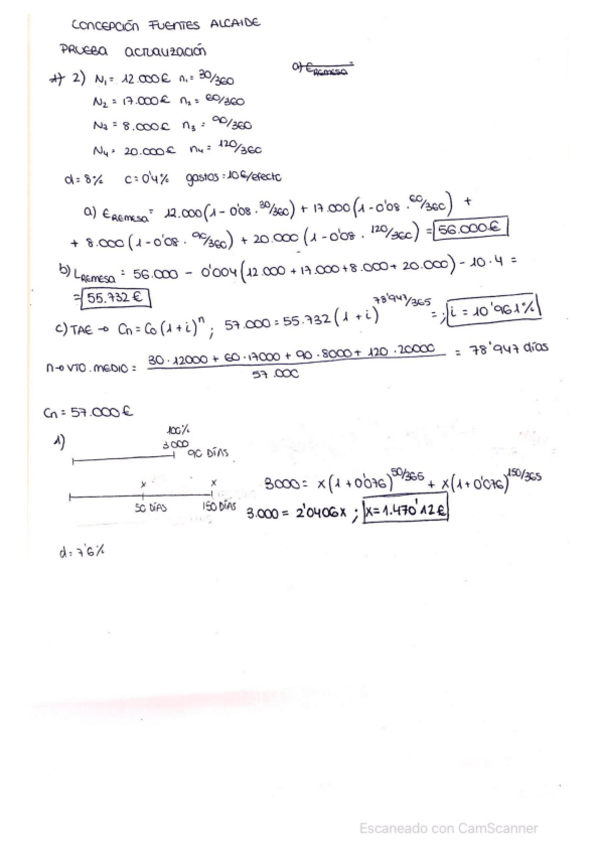 CONCEPCIÓN FUENTES ALCAIDE
PRUEBA ACTUALIZACIÓN
2) N₁ = 12.000€ n₁ = 30/360
a) E REMESA =
N₂ = 17.000€ n₂ = 60/360
N₃ = 8.000€ n₃ = 90/360
N₄ = 20.000€ n₄ = 120/360
d = 8% c = 0'4% gastos = 10€/efecto
a) E REMESA = 12.000(1 - 0'08 · 30/360) + 17.000(1 - 0'08 · 60/360) +
+ 8.000(1 - 0'08 · 90/360) + 20.000(1 - 0'08 · 120/360) = 56.000€
b) L REMESA = 56.000 - 0'004(12.000 + 17.000 + 8.000 + 20.000) - 10 · 4 =
= 55.732€
c) TAE → Cn = C₀(1 + i)ⁿ ; 57.000 = 55.732(1 + i)^78'947/365 = ; i = 10'961%
n → VTO. MEDIO = 30 · 12000 + 60 · 17000 + 90 · 8000 + 120 · 20000 / 57.000 = 78'947 días
Cn = 57.000€
1)
100%
3000
90 DÍAS
x x
50 DÍAS 150 DÍAS
3000 = x(1 + 0'076)^50/365 + x(1 + 0'076)^150/365
3.000 = 2'0406x ; x = 1.470'12€
d = 7'6%
Escaneado con CamScanner